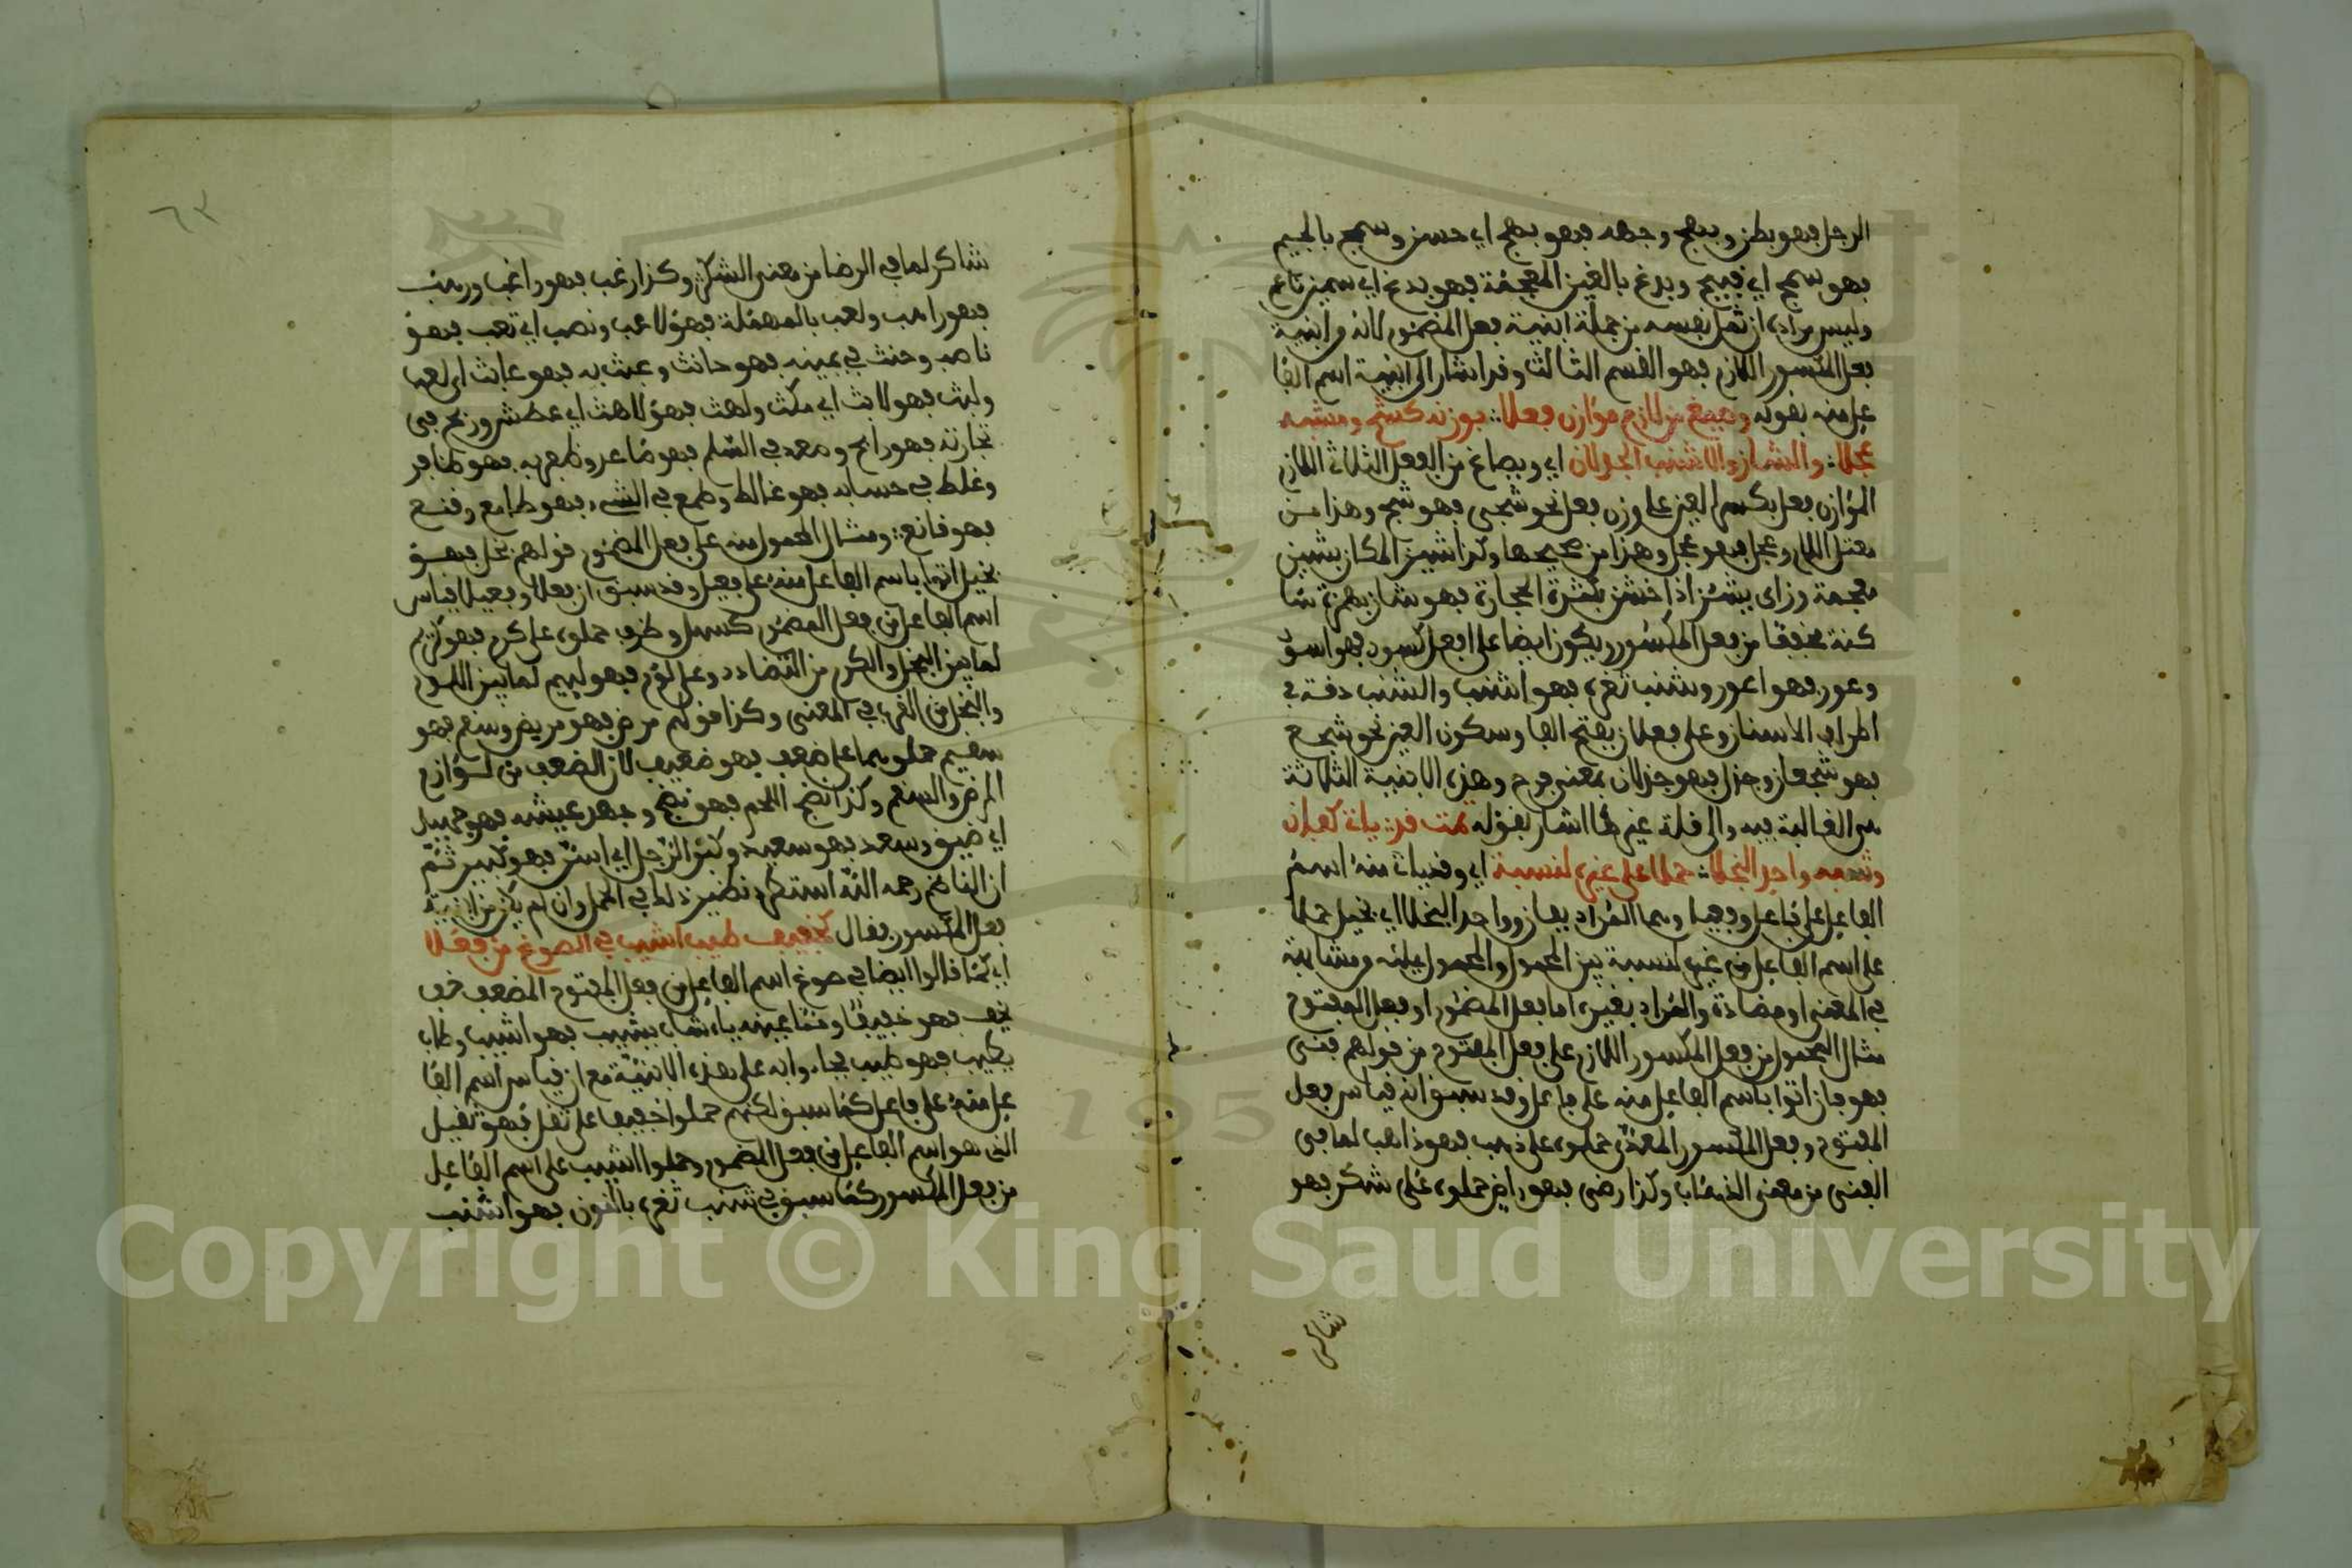 الرجل فهو بطن وبهج وجهه فهو بهج اي حسن وسمج بالجيم
فهو سمج اي قبيح وبدغ بالغين المعجمة فهو بدغ اي سمين ناعم
وليس مراده ان ثمل نفسه من جملة ابنية فعل المضموم لانه من ابنية
فعل المكسور اللازم فهو القسم الثالث وقد اشار الى ابنية اسم الفا
عل منه بقوله وصيغ من لازم موازن فعلا بوزنه كشج ومشبه
عجلا والشاز والاشنب الجذلان اي ويصاغ من الفعل الثلاثي اللازم
الموازن فعل بكسر العين على وزن فعل نحو شجي فهو شج وهذا من
معتل اللام وعجل فهو عجل وهذا من صحيحها وكذا شيز المكان بشين
معجمة وزاى يشئز اذا خشن بكثرة الحجارة فهو شاز بهمزة سا
كنة مخففا من فعل المكسور ويكون ايضا على افعل كسود فهو اسود
وعور فهو اعور وشنب ثغره فهو اشنب والشنب دقة في
اطراف الاسنان وعلى فعلان بفتح الفا وسكون العين نحو شبع
فهو شبعان وجذل فهو جذلان بمعنى فرح وهذه الابنية الثلاثة
هي الغالبة فيه والى قلة غيرها اشار بقوله ثمت قد ياتي كفان
وشبه واحد البخلا حملا على غيره لنسبة اي وقد يات منه اسم
الفاعل على فاعل وفعيل وهما المراد بفان وواحد البخلا اي بخيل حملا
على اسم الفاعل من غيره لنسبة بين المحمول والمحمول عليه من مشابهة
في المعنى او مضادة والمراد بغيره اما فعل المضموم او فعل المفتوح
مثال المحمول من فعل المكسور اللازم على فعل المفتوح من قولهم فني
فهو فان اتوا باسم الفاعل منه على فاعل وقد سبق انه قياس فعل
المفتوح وفعل المكسور المعدى حملوه على ذهب فهو ذاهب لما في
الفنى من معنى الذهاب وكذا رضي فهو راض حملوه على شكر فهو
شاكر
٦٣
شاكر لما في الرضا من معنى الشكر وكذا رغب فهو راغب ورهب
فهو راهب ولعب بالمهملة فهو لاعب ونصب اي تعب فهو
ناصب وحنث في يمينه فهو حانث وعبث به فهو عابث اي لعب
ولبث فهو لابث اي مكث ولهث فهو لاهث اي عطش وربح في
تجارته فهو رابح وصعد في السلم فهو صاعد وظفر به فهو ظافر
وغلط في حسابه فهو غالط وطمع في الشيء فهو طامع وقنع
فهو قانع ومثال المحمول منه على فعل المضموم قولهم بخل فهو
بخيل اتوا باسم الفاعل منه على فعيل وقد سبق ان فعلا وفعيلا قياس
اسم الفاعل من فعل المضموم كسهل وظرف حملوه على كرم فهو كريم
لما بين البخل والكرم من التضادد وعلى لؤم فهو لييم لما بين اللوم
والبخل من القرب في المعنى وكذا قولهم مرض فهو مريض وسقم فهو
سقيم حملوهما على ضعف فهو ضعيف لان الضعف من لوازم
المرض والسقم وكذا نضج اللحم فهو نضج وجهد عيشه فهو جهيد
اي ضيق وسعد فهو سعيد وكبر الرجل اي اسن فهو كبير ثم
ان الناظم رحمه الله استطرد نظير ذلك في الحمل وان لم يكن من ابنية
فعل المكسور فقال كخفيف طيب اشيب في الصوغ من فعلا
اي كما قالوا ايضا في صوغ اسم الفاعل من فعل المفتوح المضعف خف
يخف فهو خفيف ومما عينه ياء شاب يشيب فهو اشيب وطاب
يطيب فهو طيب فجاءوا به على هذه الابنية مع ان قياس اسم الفا
عل منه على فاعل كما سبق لكنهم حملوا خفيفا على ثقل فهو ثقيل
الذي هو اسم الفاعل من فعل المضموم وحملوا اشيب على اسم الفاعل
من فعل المكسور كما سبق في شنب ثغره بالنون فهو اشنب
Copyright © King Saud University
1957